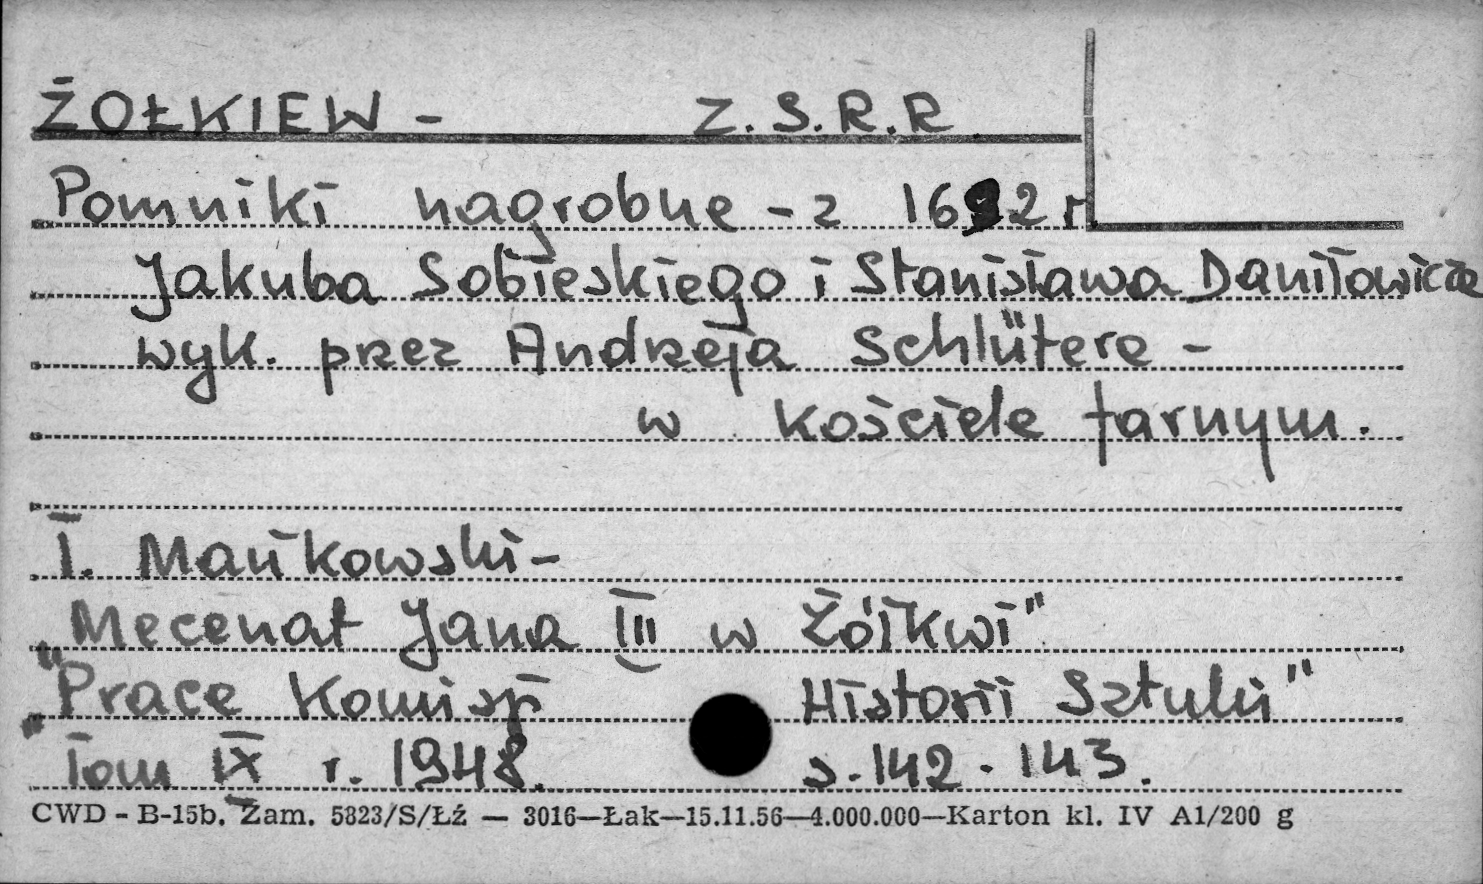 ŻOŁKIEW - Z.S.R.R
Pomniki nagrobne - z 1692 r.
Jakuba Sobieskiego i Stanisława Daniłowicza
wyk. przez Andrzeja Schlütera -
w kościele farnym.
T. Mańkowski -
"Mecenat Jana III w Żółkwi"
"Prace Komisji Historii Sztuki"
Tom IX r. 1948. s. 142 - 143.
CWD - B-15b. Zam. 5823/S/Łź — 3016—Łak—15.11.56—4.000.000—Karton kl. IV A1/200 g